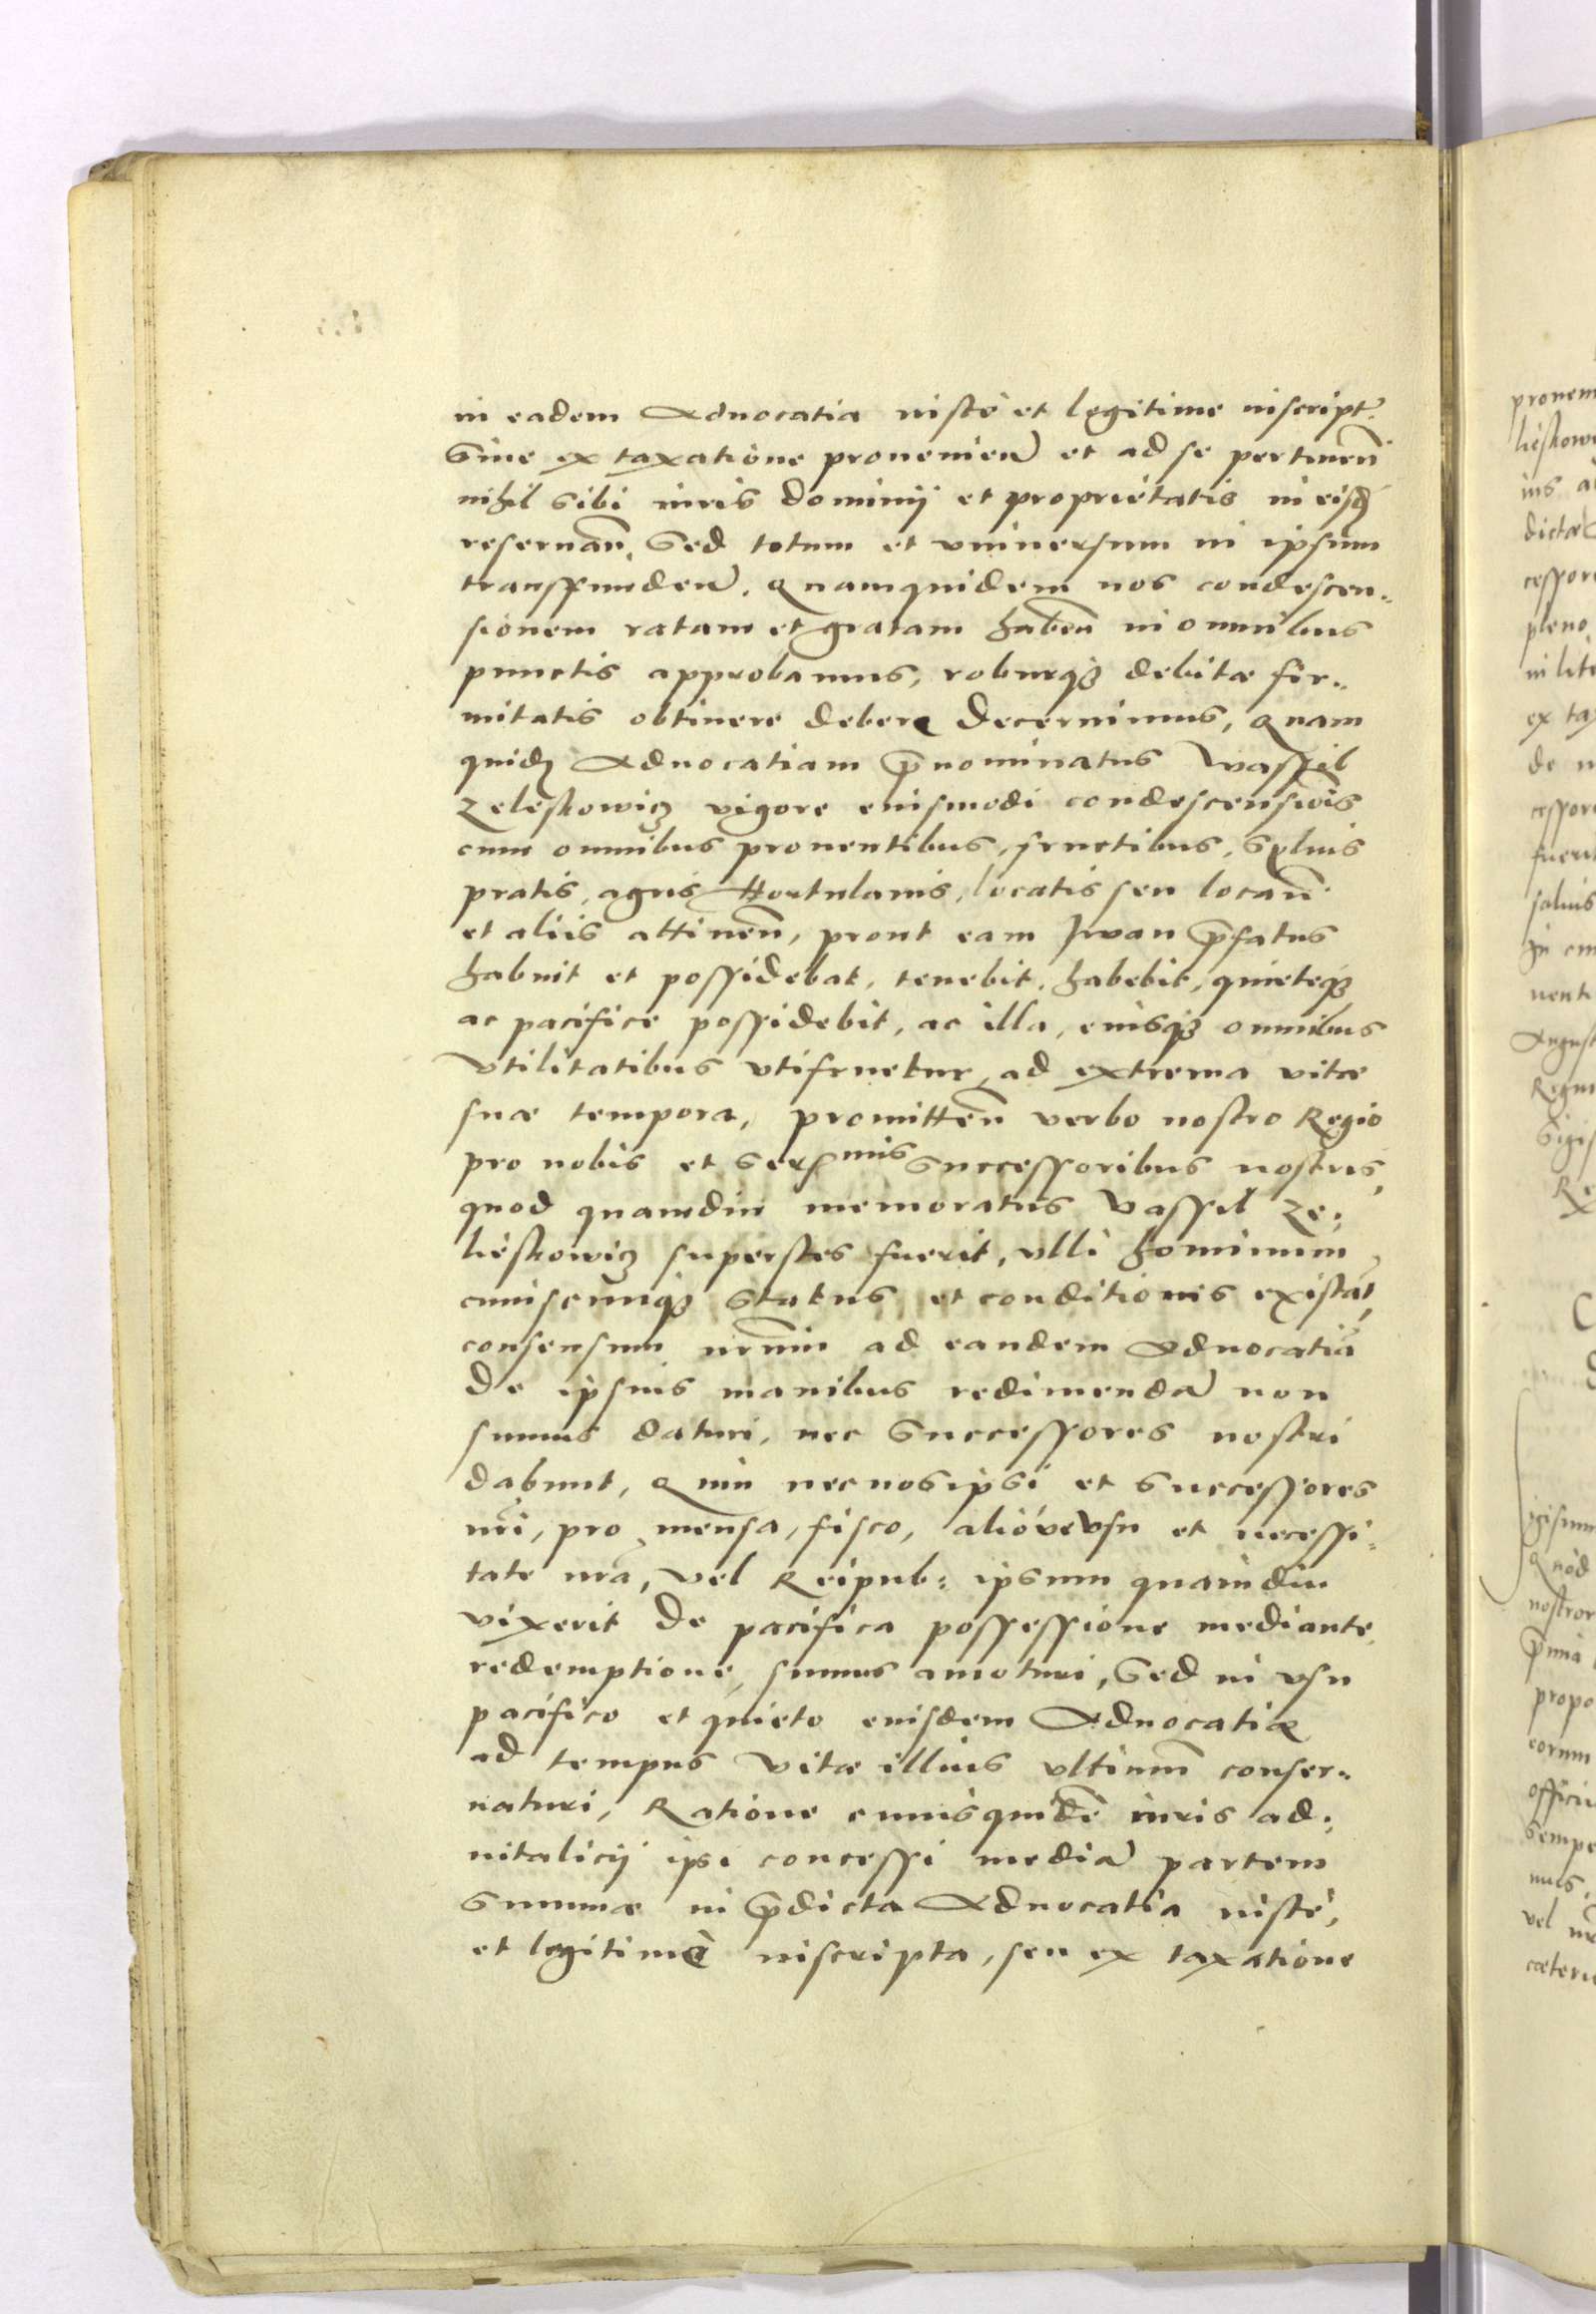 in eadem Advocatia iustè et legitime inscript.
Siue ex taxatione prouenień et ad se pertineń
nihil sibi iuris dominij et proprietatis in eisd
reseruań, Sed totum et vniuersum in ipsum
transfundeń. Quamquidem nos condescen-
sionem ratam et gratam habeń in omnibus
punctis approbamus, roburq₃ debitæ fir-
mitatis obtinere debere decernimus, Quam
quid Aduocatiam p̄nominatus Wassil
Zeleskowicz vigore eiusmodi condescensiōis
cum omnibus prouentibus, fructibus, Syluis
pratis, agris Hortulanis, locatis seu locań
et aliis attineń, prout eam Iwan p̄fatus
habuit et possidebat, tenebit, habebit, quieteq₃
ac pacifice possidebit, ac illa, eiusq₃ omnibus
Vtilitatibus vtifruetur, ad extrema vitæ
suæ tempora, promitteń verbo nostro Regio
pro nobis et Serᵐⁱˢ Successoribus nostris,
quod quamdiu memoratus Vassil Ze-
lieskowicz superstes fuerit, vlli hominum
cuiuscunq₃ Status et conditionis existāt,
consensum nr̄um ad eandem Aduocatiā
de ipsius manibus redimendā non
sumus daturi, nec Successores nostri
dabunt, Quin nec nosipsi et Successores
nr̄i, pro mensa, fisco, alióve vsu et necessi-
tate nr̄a, vel Reipub: ipsum quamdiu
vixerit de pacifica possessione mediante
redemptione, sumus amoturi, Sed in vsu
pacifico et quieto eiusdem Aduocatiæ
ad tempus vitæ illius vltimum conser-
uaturi, Ratione cuiusquidē iuris ad-
uitalicij ipsi concessi mediā partem
Summæ in p̄dicta Aduocatia iustè,
et legitimè inscripta, seu ex taxatione